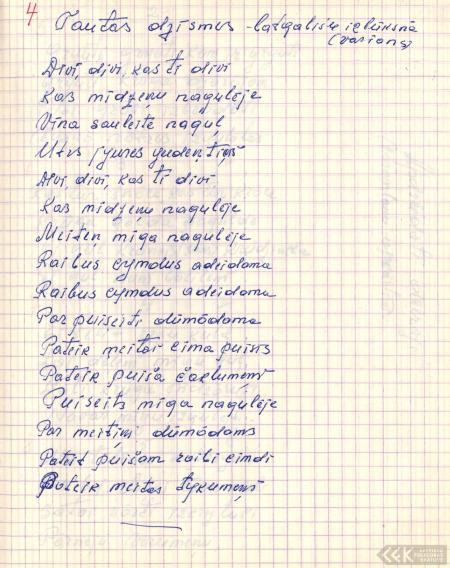 4
Tautas dzismes - latgalīšu izlūksnā
(variants)
Divi, divi, kas tī divi
Kas mīdzeņu nagulēje
Vīna sauleite naguļ
Utrs jyures yudeņtiņš
Divi, divi, kas tī divi
Kas mīdzeņu nagulēje
Meiteņ mīga nagulēje
Raibus cymdus adeidama
Raibus cymdus adeidama
Par puiseiti dūmōdama
Pateik meitai cima puisis
Pateik puiša
Puiseits mīga nagulēje
Par meitiņi dūmōdams
Pateik puišam raibi cimdi
Pateik meitas tykumeņš